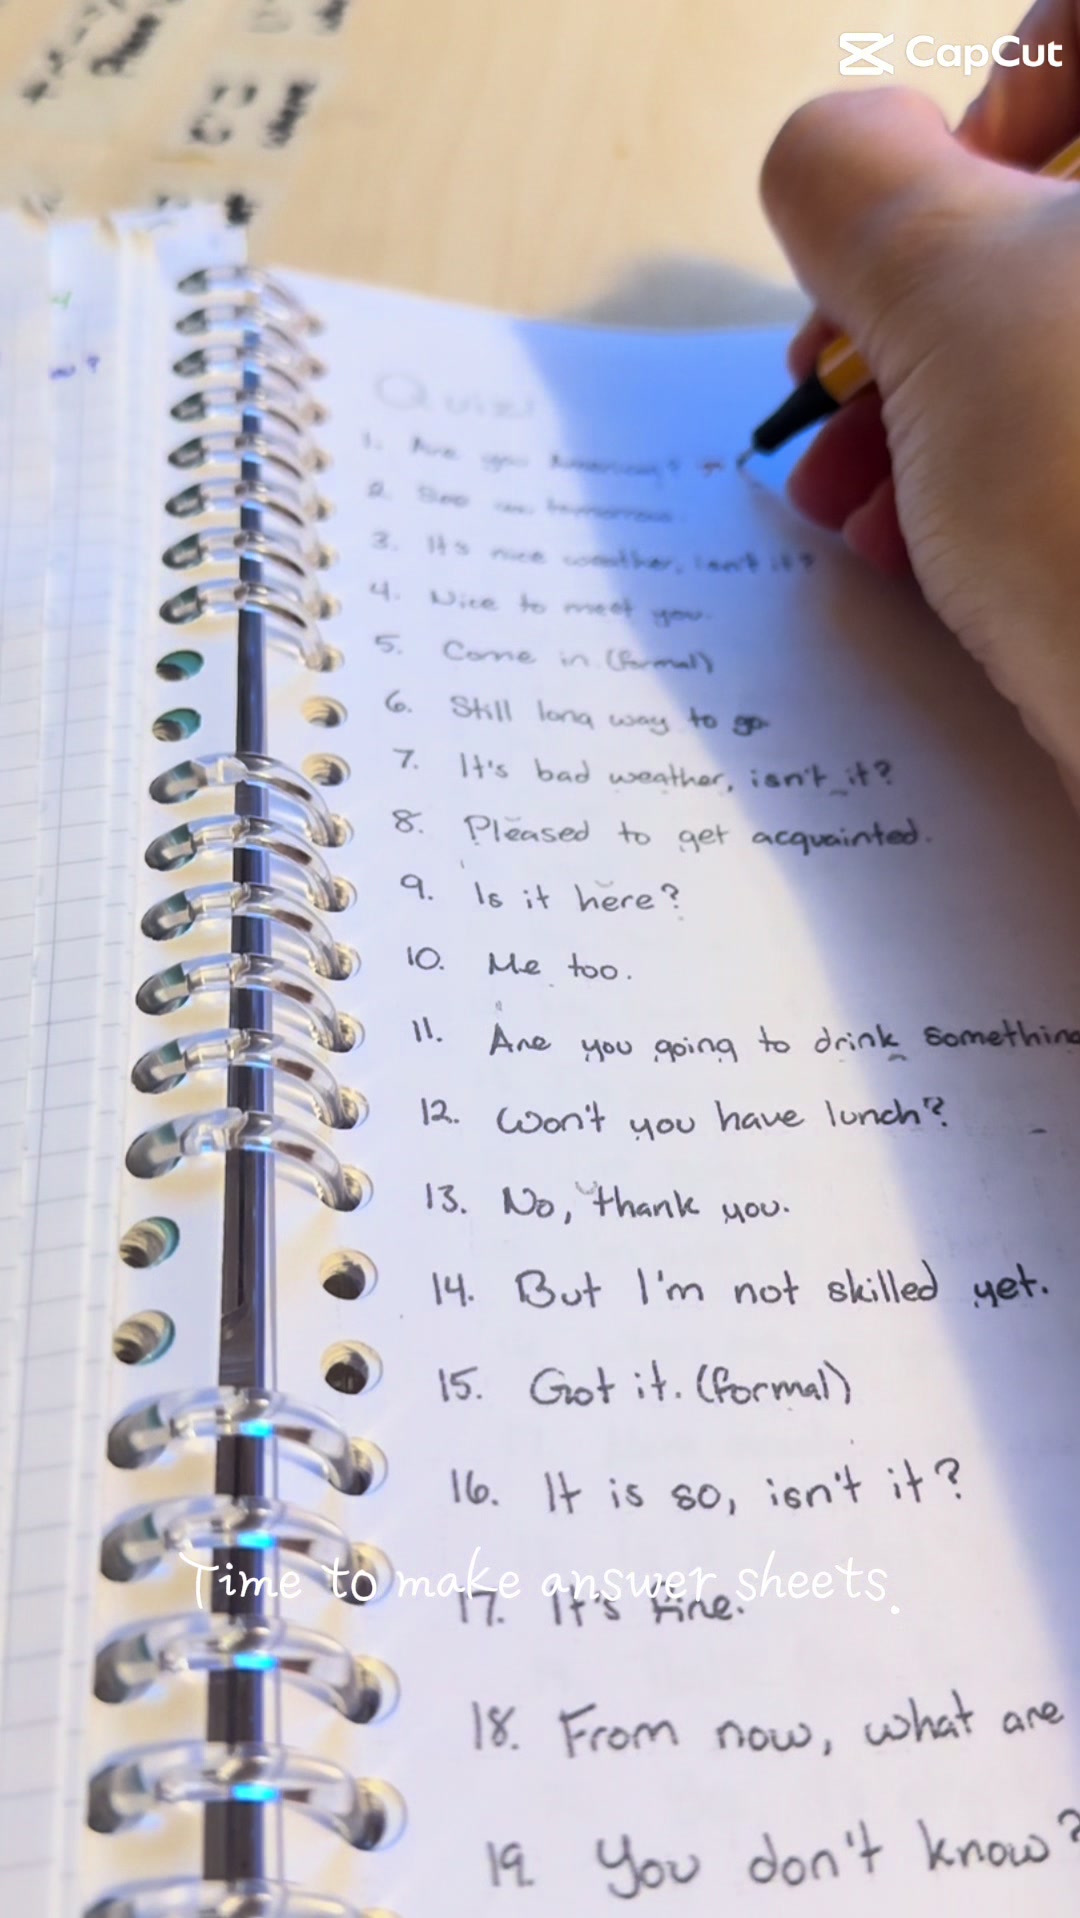 CapCut
Quiz!
1. Are you American?
2. See tomorrow.
3. It's nice weather, isn't it?
4. Nice to meet you.
5. Come in. (formal)
6. Still long way to go
7. It's bad weather, isn't it?
8. Pleased to get acquainted.
9. Is it here?
10. Me too.
11. Are you going to drink something
12. Won't you have lunch?
13. No, thank you.
14. But I'm not skilled yet.
15. Got it. (formal)
16. It is so, isn't it?
Time to make answer sheets.
17. It's fine.
18. From now, what are
19. You don't know?